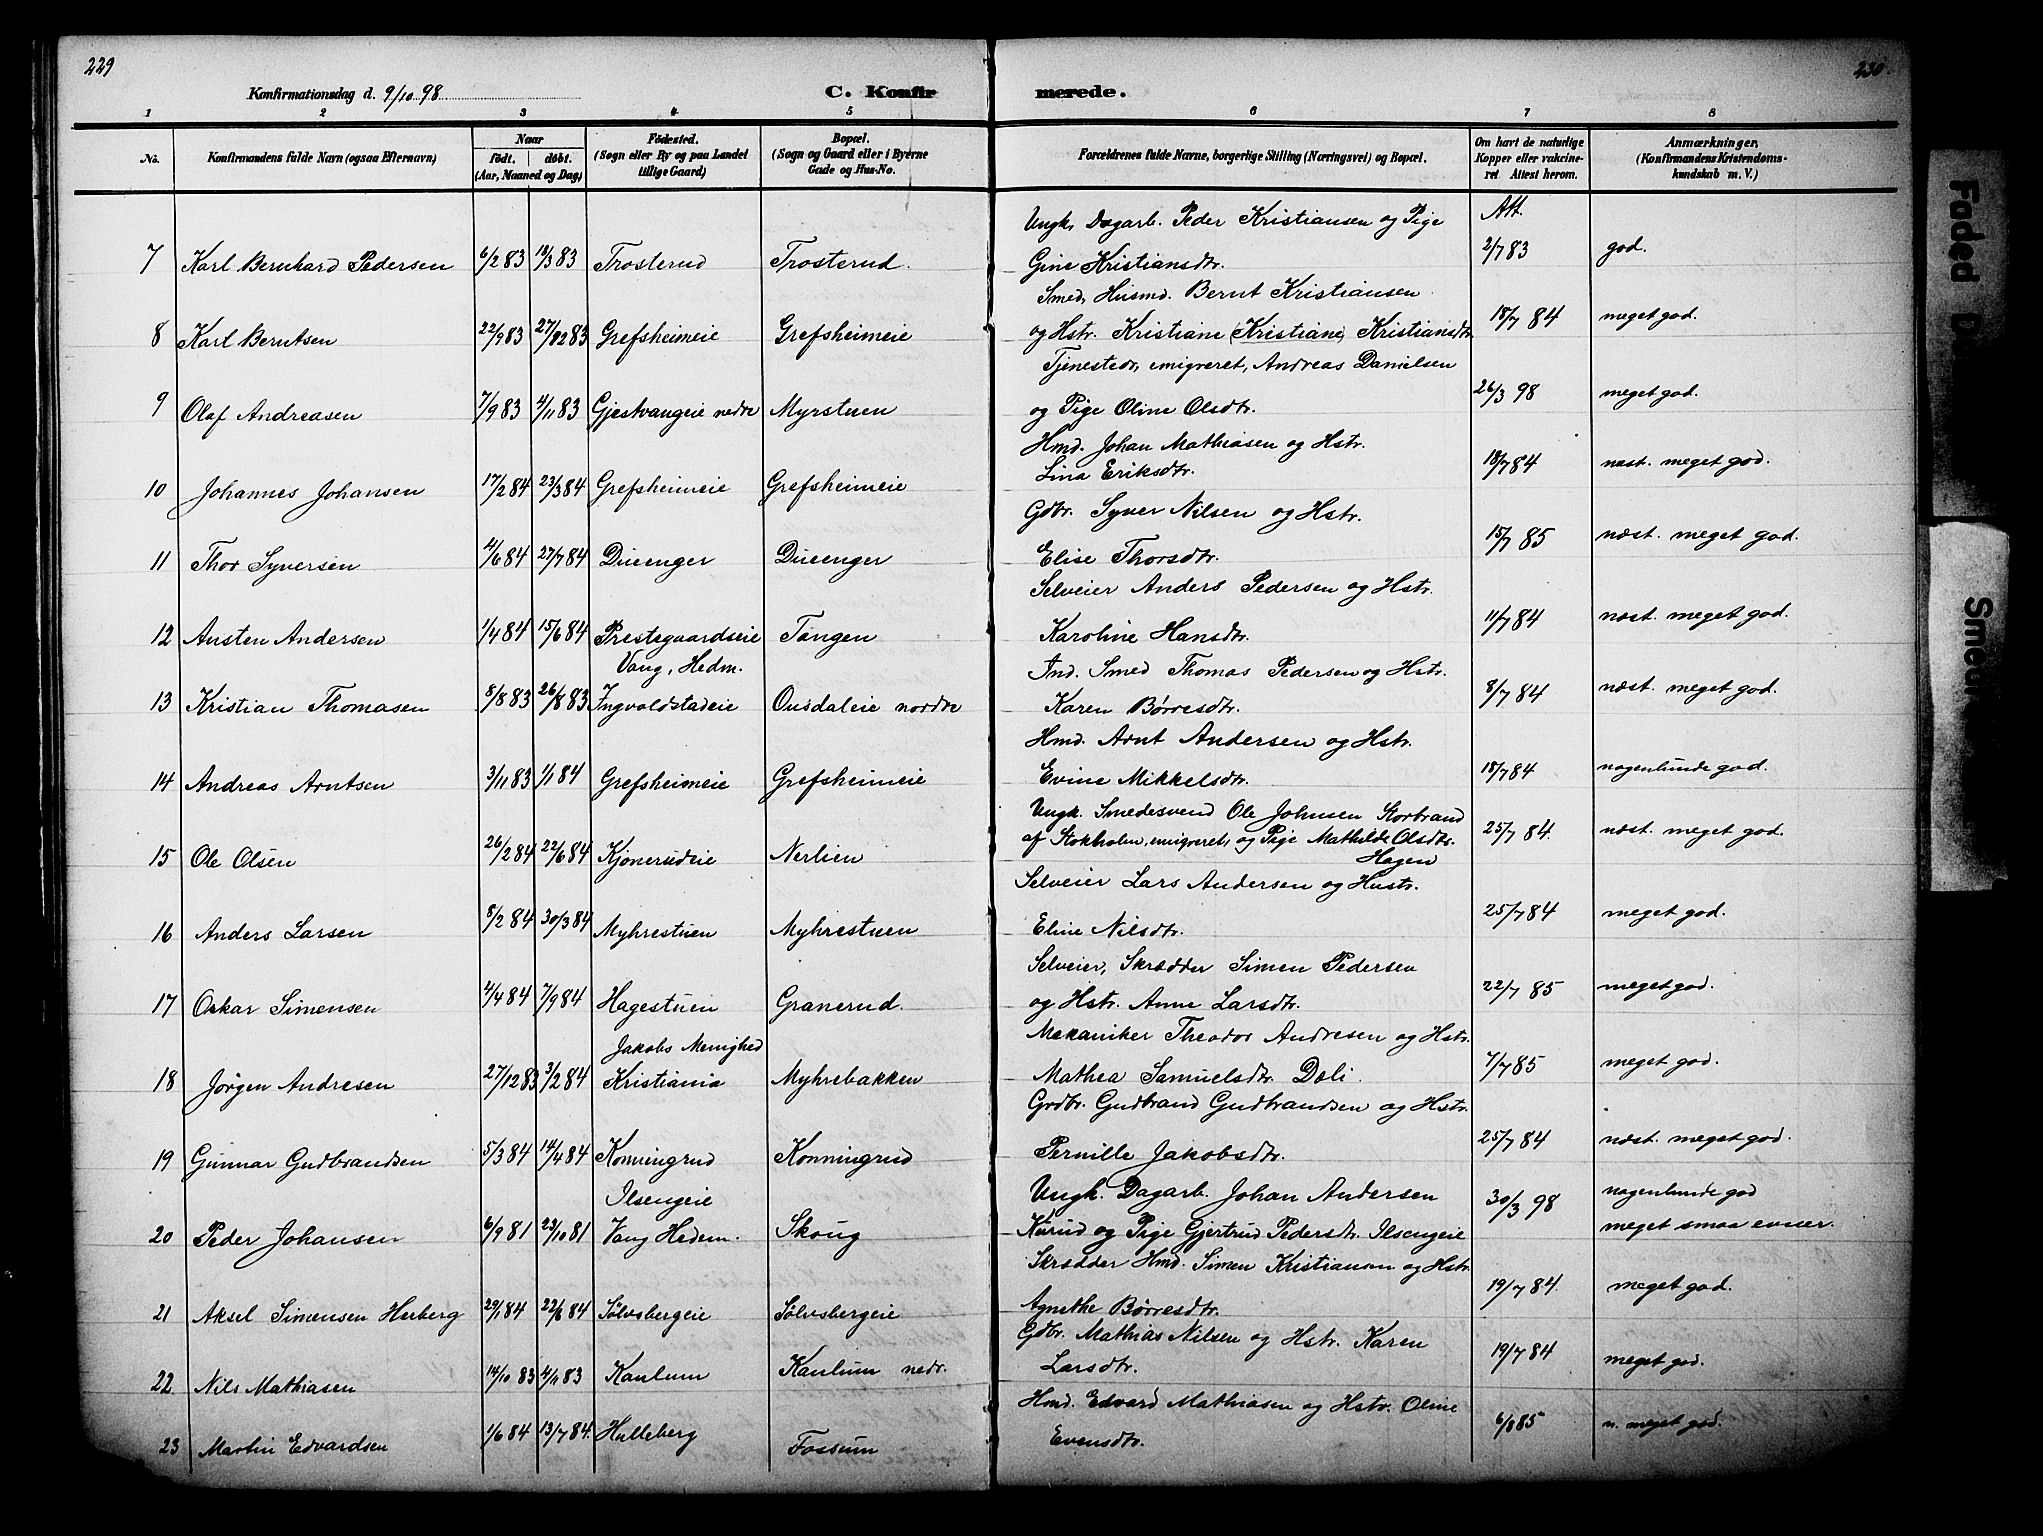 229
230.
Konfirmationsdag d. 9/10 98
C. Konfir
merede.
1 2 3 4 5 6 7 8
No. Konfirmandens fulde Navn (ogsaa Efternavn) Naar födt. döbt. (Aar, Maaned og Dag) Födested. (Sogn eller By og paa Landet tillige Gaard) Bopæl. (Sogn og Gaard eller i Byerne Gade og Hus-No. Forældrenes fulde Navne, borgerlige Stilling (Næringsvei) og Bopæl. Om havt de naturlige Kopper eller vakcineret Attest herom. Anmærkninger, (Konfirmandens Kristendomskundskab m. V.)
Ungk. Dagarb. Peder Kristiansen og Pige Att.
7 Karl Bernhard Pedersen 6/2 83 /3 83 Trosterud Trosterud. Gine Kristiansdtr. 2/7 83 god.
Smed, Husmd. Bernt Kristiansen
8 Karl Berntsen 22/9 83 27/ 83 Grefsheimeie Grefsheimeie og Hstr. Kristiane (Kristiane) Kristiansdtr. 18/7 84 meget god.
Tjenestedr., emigreret, Andreas Danielsen
9 Olaf Andreasen 7/9 83 4/11 83 Gjestvangeie nedre Myrstuen og Pige Oline Olsdtr. 26/3 98 meget god.
Hmd. Johan Mathiasen og Hstr.
10 Johannes Johansen 17/2 84 23/3 84 Grefsheimeie Grefsheimeie Lina Eriksdtr. 18/7 84 næst. meget god.
Gdbr. Syver Nilsen og Hstr.
11 Thor Syversen 4/6 84 27/7 84 Dueenger Dueenger Elise Thorsdtr. 15/7 85 næst. meget god.
Selveier Anders Pedersen og Hstr.
12 Austen Andersen 1/4 84 15/6 84 Prestegaardseie Tangen Karoline Hansdtr. 11/7 84 næst. meget god.
Vang, Hedm. Ind. Smed Thomas Pedersen og Hstr.
13 Kristian Thomasen 8/8 83 26/8 83 Ingvoldstadeie Ousdaleie nordre Karen Börresdtr. 8/7 84 næst. meget god.
Hmd. Arnt Andersen og Hstr.
14 Andreas Arntsen 3/11 83 1/1 84 Grefsheimeie Grefsheimeie Evine Mikkelsdtr. 18/7 84 nogenlunde god.
Ungk. Smedesvend Ole Johnsen Storbrand
15 Ole Olsen 26/2 84 22/6 84 Kjonerudeie Nerlien af Stokholm, emigreret, og Pige Mathilde Olsdtr. 25/7 84. næst. meget god.
Hagen
Selveier Lars Andersen og Hustr.
16 Anders Larsen 8/2 84 30/3 84 Myhrestuen Myhrestuen Eline Nilsdtr. 25/7 84 meget god.
Selveier, Skrædder Simen Pedersen
17 Oskar Simensen 4/4 84 7/9 84 Hagestuen Granerud. og Hstr. Anne Larsdtr. 22/7 85 meget god.
Jakobs Menighed Mekaniker Theodor Andresen og Hstr.
18 Jörgen Andresen 27/12 83 3/2 84 Kristiania Myhrebakken Mathea Samuelsdtr. Doli. 7/7 85 meget god.
Grdbr. Gudbrand Gudbrandsen og Hstr.
19 Gunnar Gudbrandsen 5/3 84 14/4 84 Konningrud Konningrud Pernille Jakobsdtr. 25/7 84 næst. meget god.
Ilsengeie Ungk. Dagarb. Johan Andersen 30/3 98 nogenlunde god
20 Peder Johansen 6/9 81 23/10 81 Vang Hedem. Skoug Kurud og Pige Gjertrud Pedersdtr. Ilsengeie meget smaa evner.
Skrædder Hmd. Simen Kristiansen og Hstr.
21 Aksel Simensen Herberg 29/1 84 22/6 84 Sölvsbergeie Sölvsbergeie Agnethe Börresdtr. 19/7 84. meget god.
Gdbr. Mathias Nilsen og Hstr. Karen
22 Nils Mathiasen 14/10 83 4/11 83 Kaulum Kaulum nedr. Larsdtr. 19/7 84 meget god.
Hmd. Edvard Mathiasen og Hstr. Oline
23 Martin Edvardsen 1/6 84 13/7 84. Hulleberg Fossum Evensdtr. 6/8 85 n. meget god.
Faded D
Sme